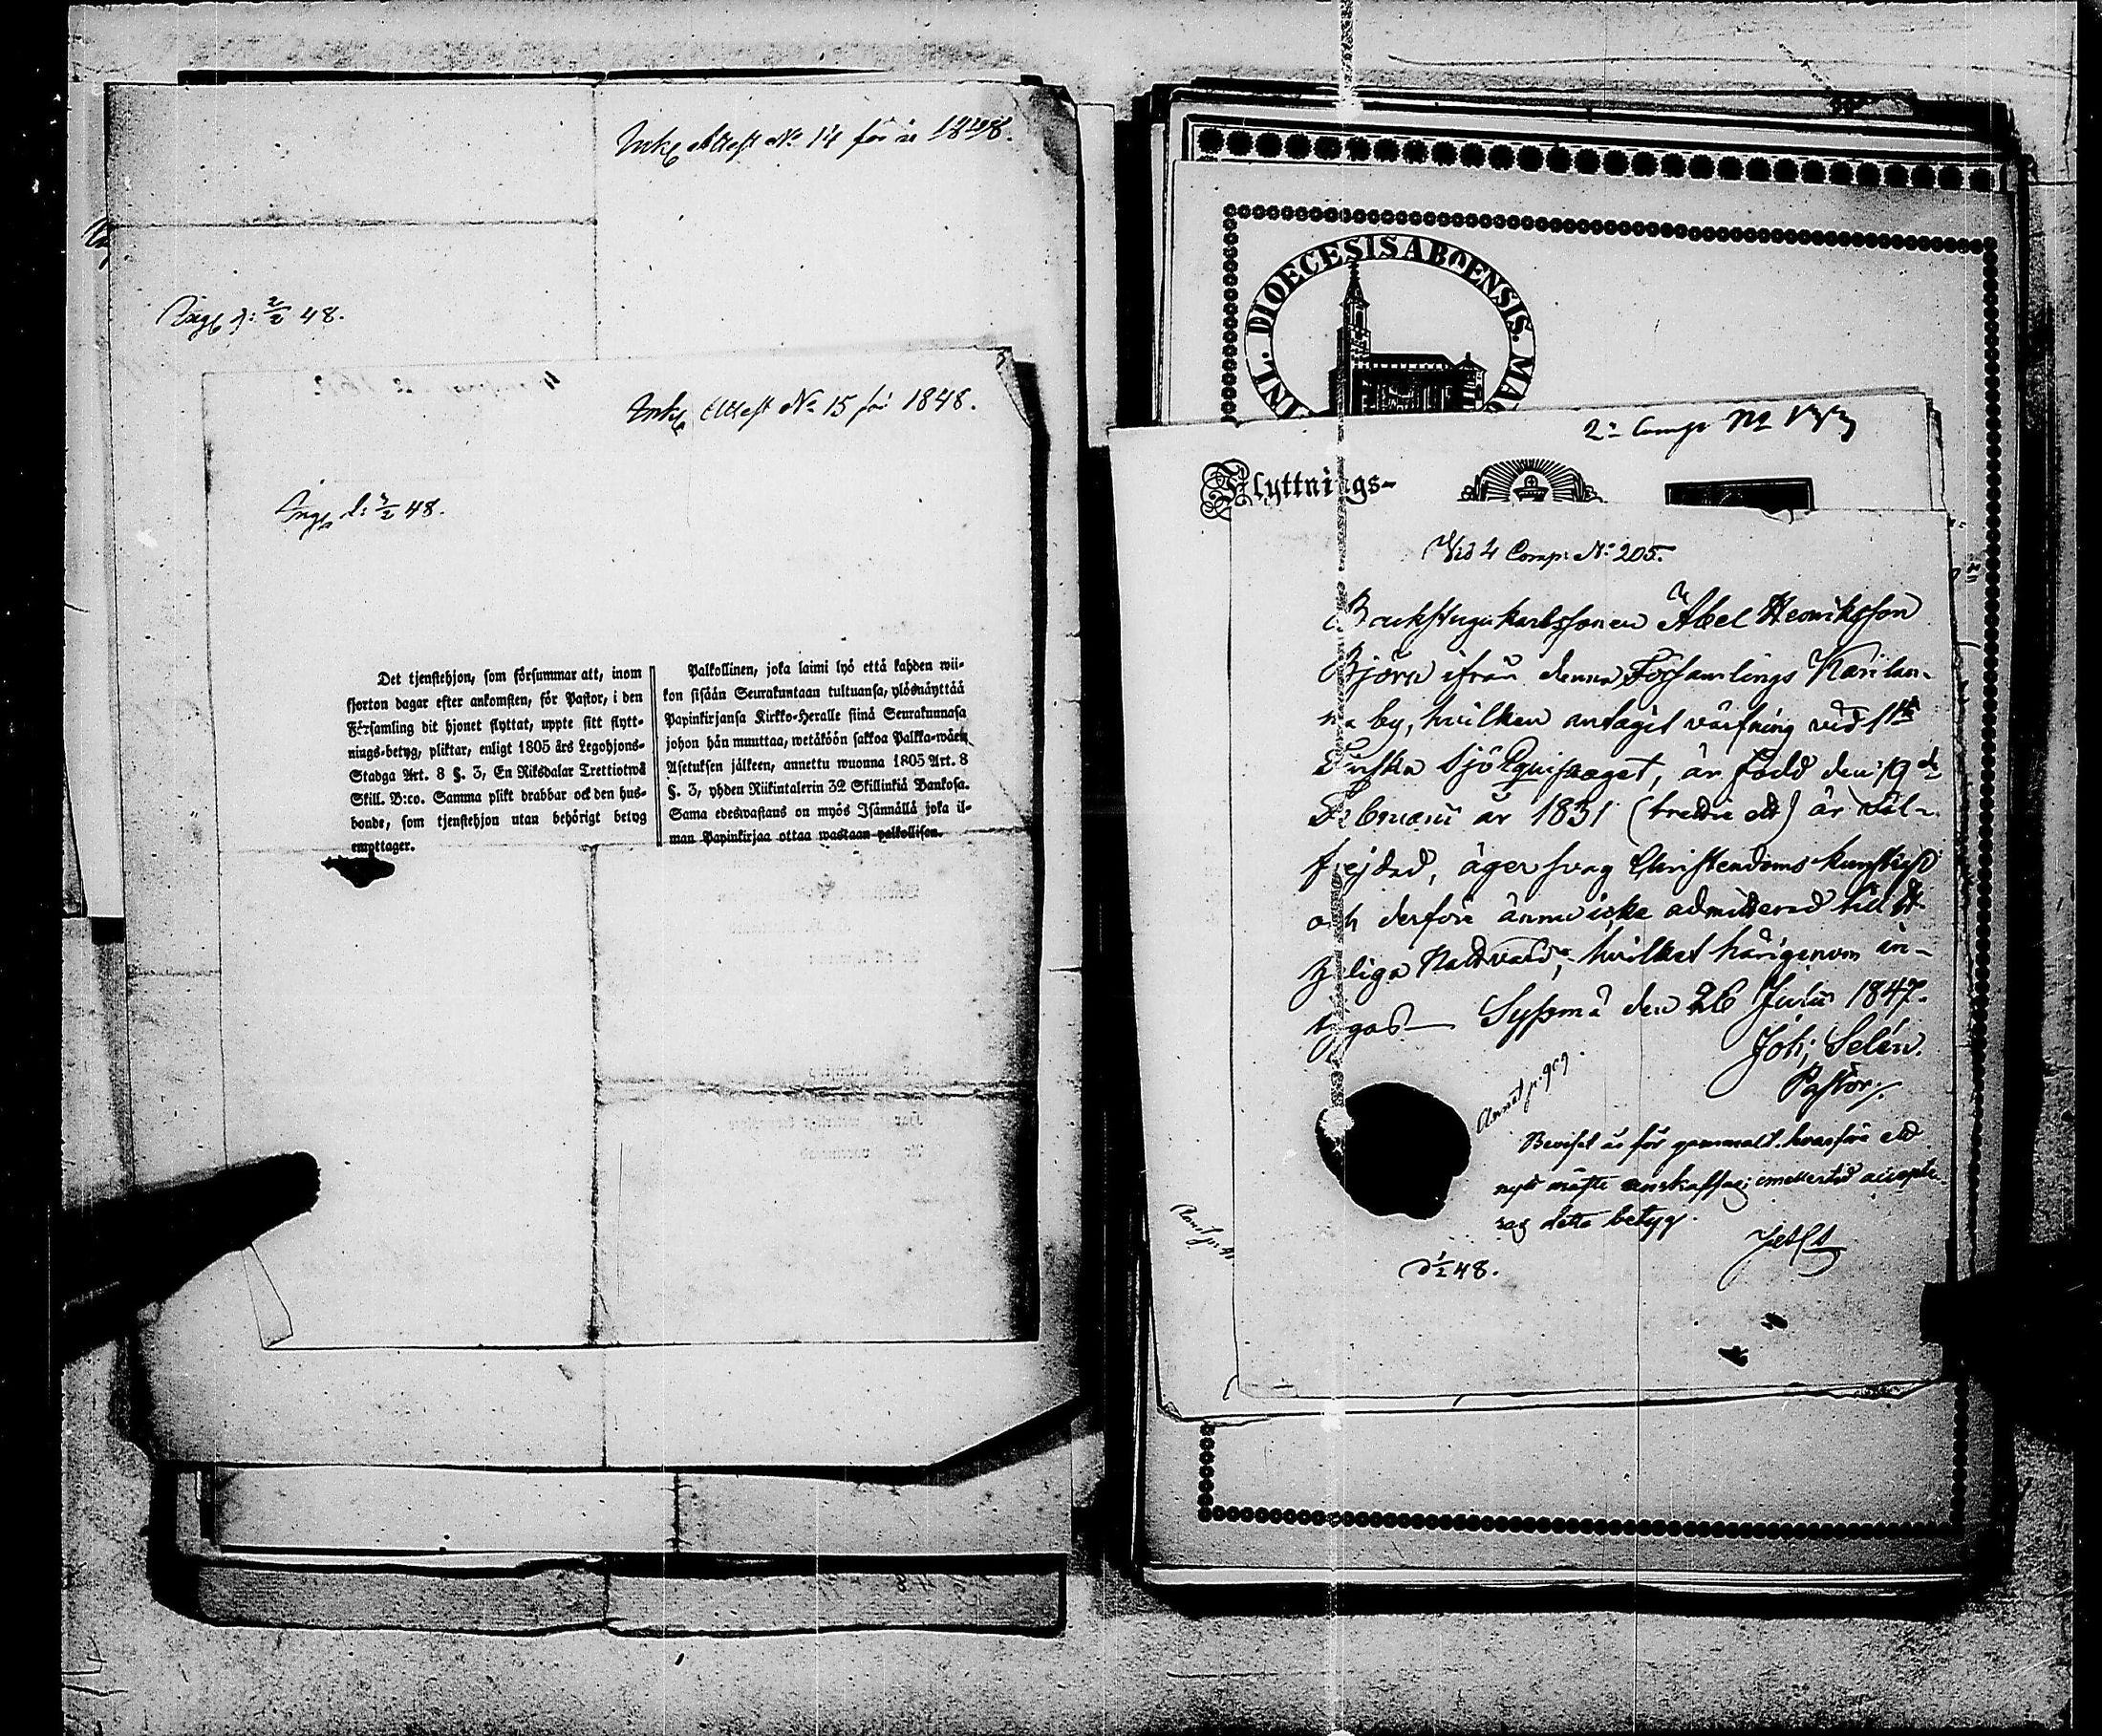 Attest No 14 för år 1848.
d: 2/2 48.
Attest No 15 för 1848.
d: 2/2 48.
Det tjenstehjon, som försummar att, inom
fjorton dagar efter ankomsten, för Pastor, i den
Församling dit hjonet flyttat, uppte sitt flytt-
nings-betyg, pliktar, enligt 1805 års Legohjons-
Stadga Art. 8 §. 3, En Riksdalar Trettiotwå
Skill. B:co. Samma plikt drabbar ock den hus-
bonde, som tjenstehjon utan behörigt betyg
emottager.
Palkollinen, joka laimi lyö että kahden wii-
kon sisään Seurakuntaan tultuansa, ylösnäyttää
Papinkirjansa Kirkko-Heralle siinä Seurakunnasa
johon hän muuttaa, wetäköön sakkoa Palkka-wäen
Asetuksen jälkeen, annettu wuonna 1805 Art. 8
§. 3, yhden Riikintalerin 32 Skillinkiä Bankosa.
Sama edeswastaus on myös Isännällä joka il-
man Papinkirjaa ottaa wastaan palkollisen.
INL. DIOECESIS ABOENSIS. MAG
2a Comp No
Flyttnings-
Vid 4 Comp: No 205.
Backstugukarlssonen Abel Henriksson
Björn ifrån denna Församlings Karilan-
na by, hvilken antagit värfning vid 1sta
Finska Sjö Equipaget, är född den 19de
Februarii år 1831 (trettio ett) är väl-
frejdad, äger svag Christendoms kunskap
och derföre ännu icke admitterad till H.
Nattvard, hvilket härigenom in-
tygas Sysmä den 26 Julii 1847.
Joh: Selén.
Pastor.
Annot p. 919.
Beviset är för gammalt, hvarföre ett
nytt måste anskaffas; emellertid accepte-
ras detta betyg.
d 1/2 48.